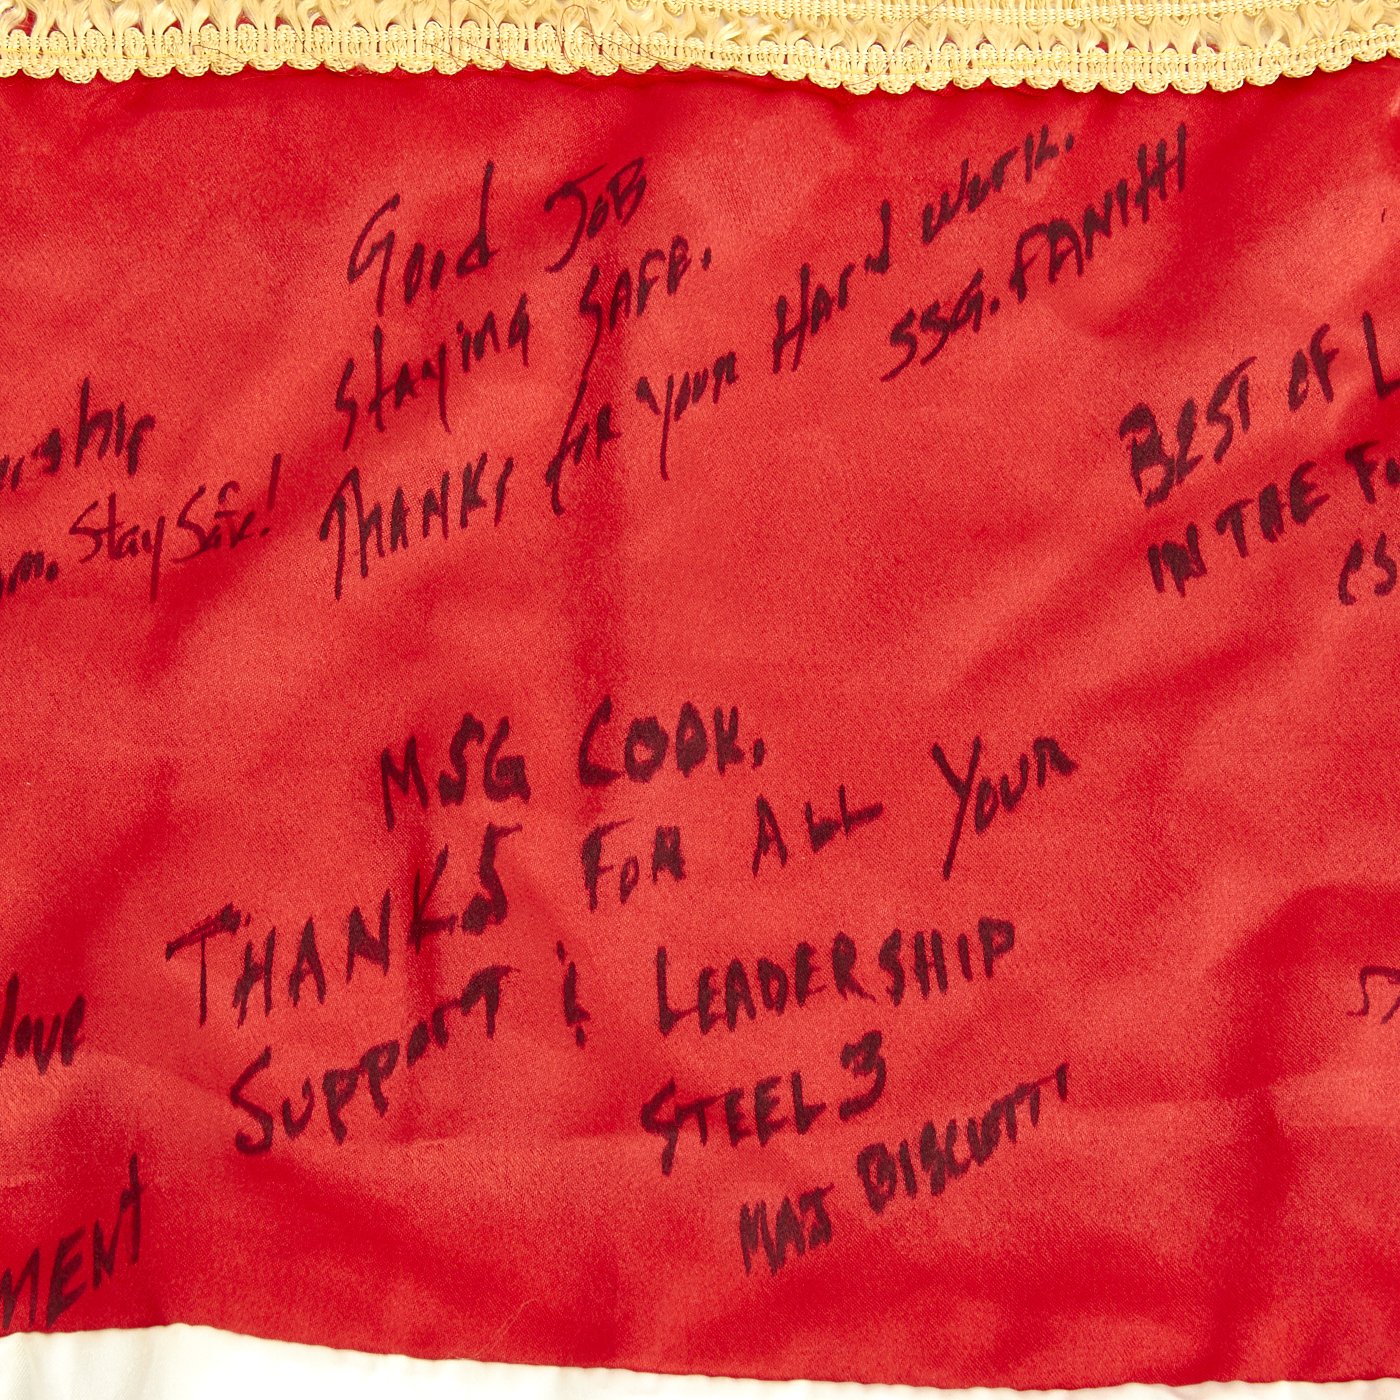 Good JOB
staying SAFE.
THANKS for your Hard work.
SSG.
Stay Safe!
BEST OF
IN THE
MSG COOK,
THANKS FOR ALL YOUR
SUPPORT & LEADERSHIP
STEEL 3
MAJ BISCOTTI